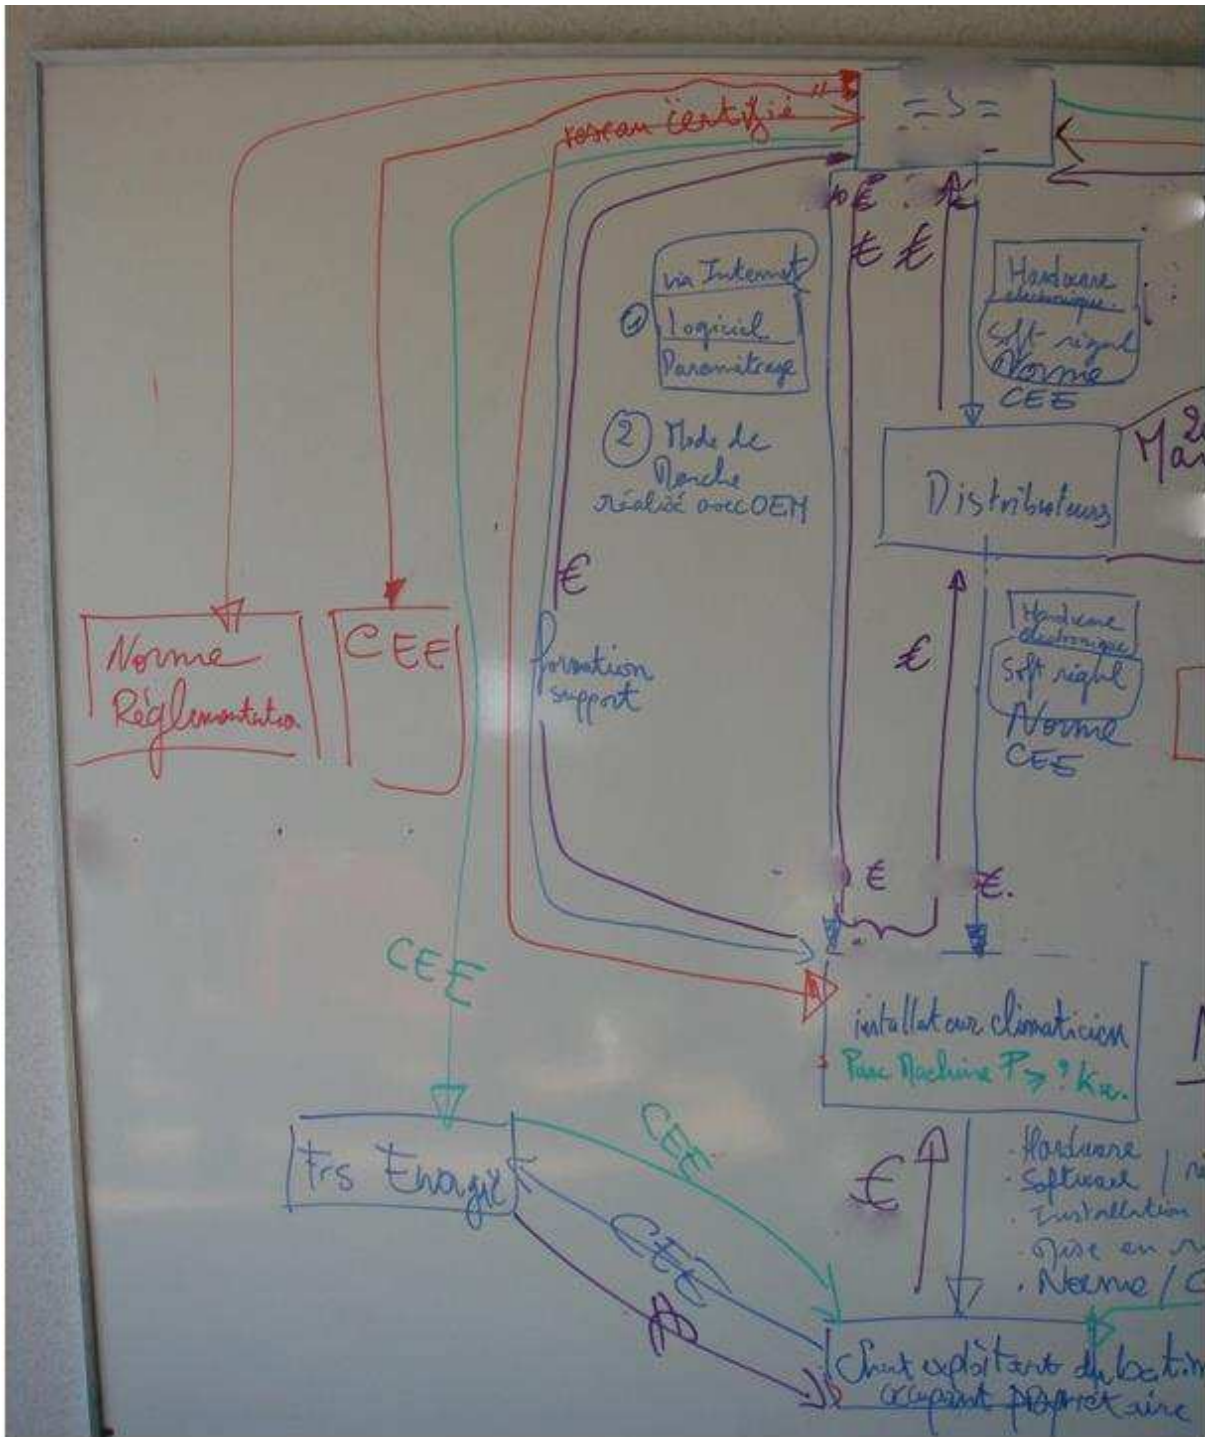 = S =
réseau certifié
€
€ €
via Internet
① Logiciel
Paramétrage
② Mode de
Marche
réalisé avec OEM
Hardware
électronique.
Soft régul
Norme
CEE
Distributeurs
€
formation
support
Norme
Réglementation
CEE
€
Hardware
électronique
Soft régul
Norme
CEE
€ €.
CEE
installateur climaticien
Parc Machine P > ? Kw.
Frs Energie
CEE
CEE
€
. Hardware
. Software /
. Installation
. Mise en
. Norme / C
Client exploitant du batim
occupant propriétaire